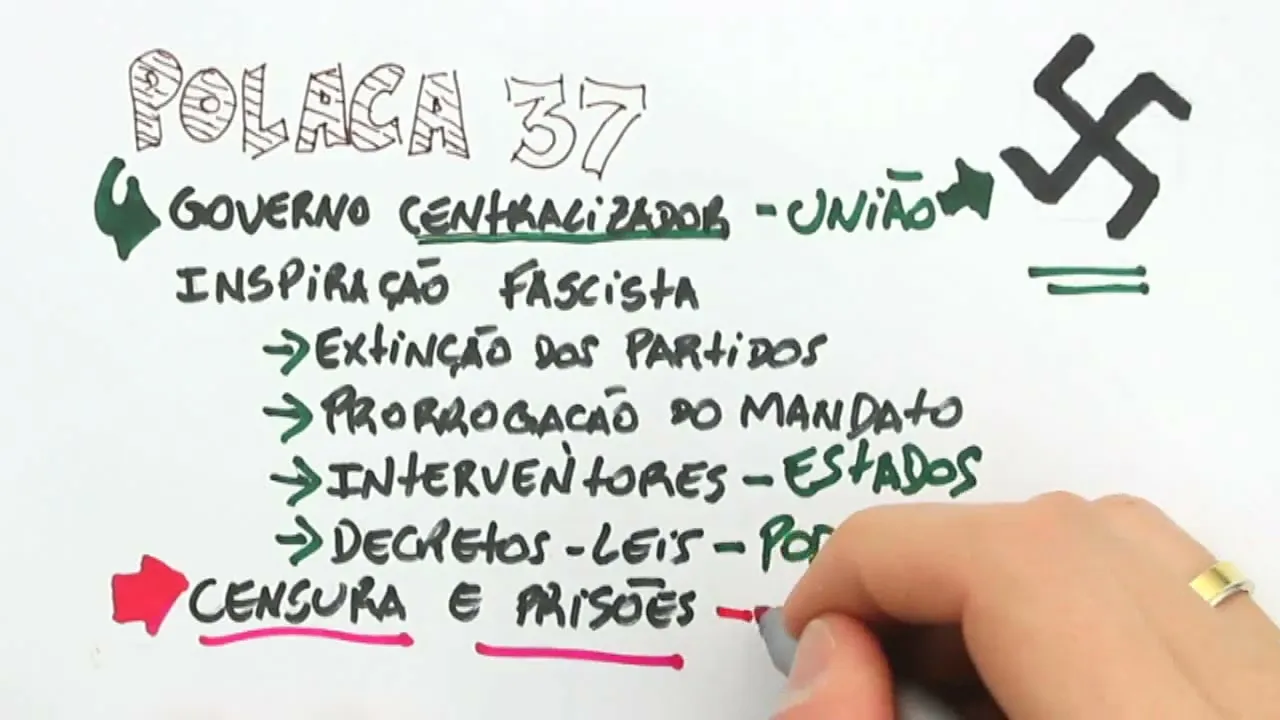 POLACA 37
GOVERNO CENTRALIZADOR - UNIÃO
INSPIRAÇÃO FASCISTA
→ EXTINÇÃO DOS PARTIDOS
→ PRORROGAÇÃO DO MANDATO
→ INTERVENTORES - ESTADOS
→ DECRETOS - LEIS -
CENSURA E PRISÕES -